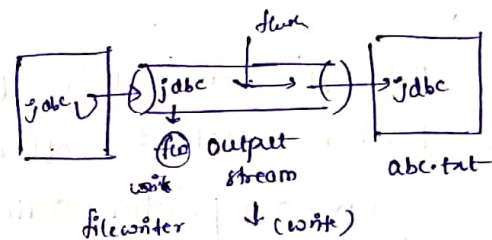 flush
jdbc jdbc jdbc
fw output
write stream abc.txt
filewriter (write)